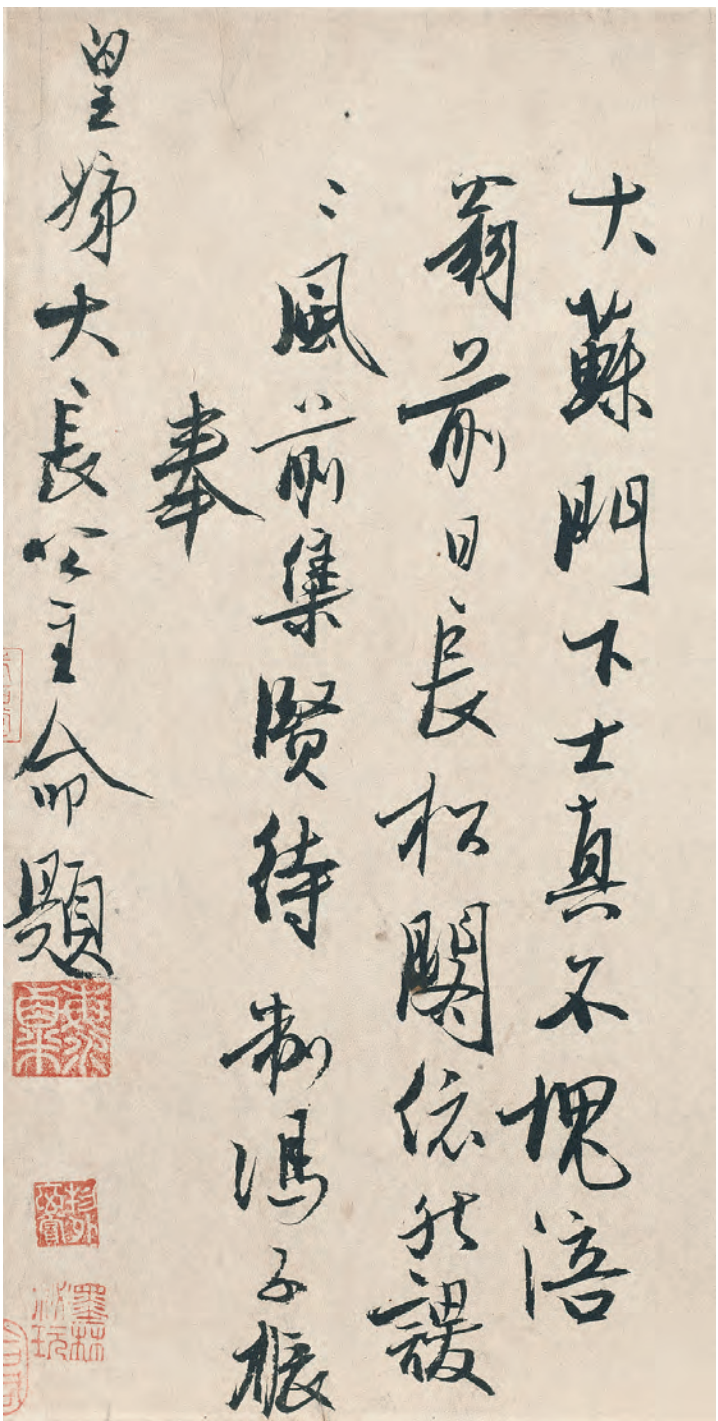 大蘇門下士真不愧涪
翁前日長松閣依然謖
〻風前集賢待制馮子振
奉
皇姊大長公主命題
墨林祕玩